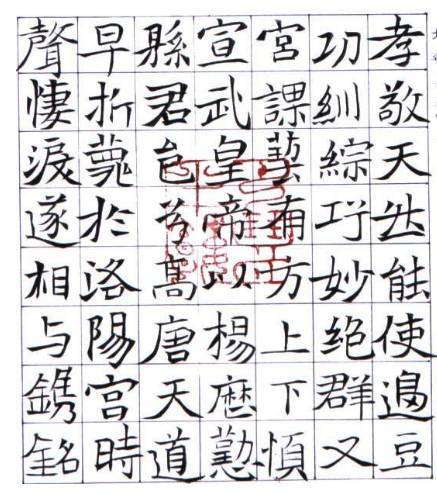 孝敬天然能使邊豆
功紃綜巧妙绝群又
宮課藝有方上下順
宣武皇帝以楊厯懃
縣君邑等高唐天道
早折薨於洛陽宮時
聲悽淚遂相与鐫銘